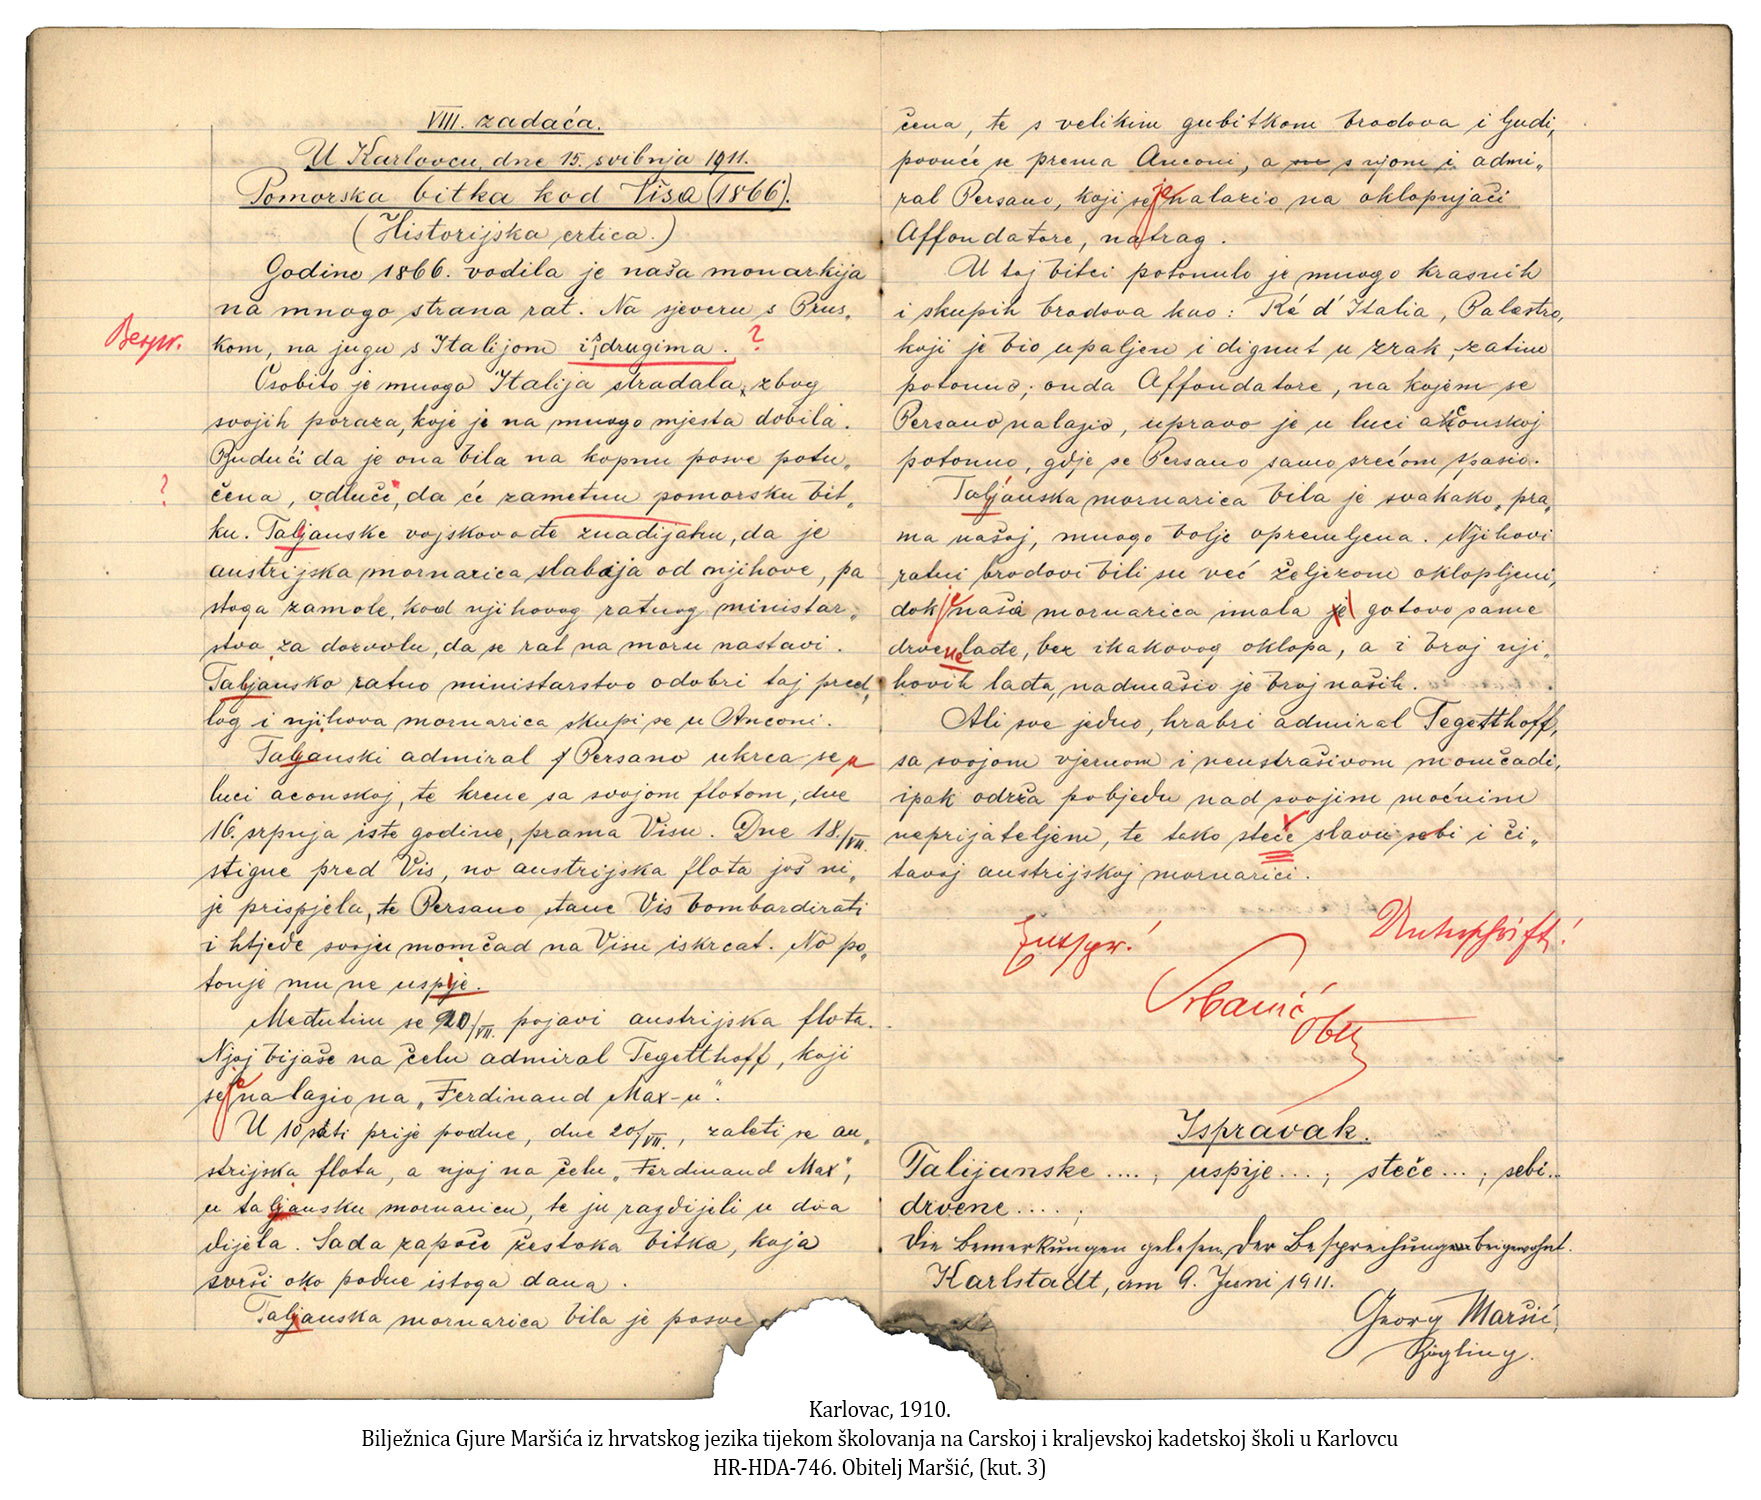 VIII. zadaća.
U Karlovcu, dne 15. svibnja 1911.
Pomorska bitka kod Visa (1866).
(Historijska crtica.)
Godine 1866. vodila je naša monarkija
na mnogo strana rat. Na sjeveru s Prus„
Bespr. kom, na jugu s Italijom i s drugima. ?
Osobito je mnogo Italija stradala, zbog
svojih poraza, koje je na mnogo mjesta dobila.
Budući da je ona bila na kopnu posve potu„
? čena, odluči, da će zametnu pomorsku bit„
ku. Taljanske vojskovođe znadijahu, da je
austrijska mornarica slabija od njihove, pa
stoga zamole, kod njihovog ratnog ministar„
stva za dozvolu, da se rat na moru nastavi.
Taljansko ratno ministarstvo odobri taj pred„
log i njihova mornarica skupi se u Anconi.
Taljanski admiral Persano ukrca se u
luci aconskoj, te krene sa svojom flotom, dne
16. srpnja iste godine, prama Visu. Dne 18./VII.
stigne pred Vis, no austrijska flota još ni„
je prispjela, te Persano stane Vis bombardirati
i htjede svoju momčad na Visu iskrcat. No po„
tonje mu ne uspije.
Međutim se 20/VII. pojavi austrijska flota.
Njoj bijaše na čelu admiral Tegetthoff, koji
se je nalazio na „Ferdinand Max-u".
U 10 sati prije podne, dne 20/VII., zaleti se au„
strijska flota, a njoj na čelu „Ferdinand Max",
u taljansku mornaricu, te ju razdijeli u dva
dijela. Sada započe žestoka bitka, koja
svrši oko podne istoga dana.
Taljanska mornarica bila je posve
čena, te s velikim gubitkom brodova i ljudi,
povuče se prema Anconi, a s njom i admi„
ral Persano, koji se je nalazio na oklopnjači
Affondatore, natrag.
U toj bitci potonulo je mnogo krasnih
i skupih brodova kao: Ré d'Italia, Palestro,
koji je bio upaljen i dignut u zrak, zatim
potonuo; onda Affondatore, na kojem se
Persano nalazio, upravo je u luci aconskoj
potonuo, gdje se Persano samo srećom spasio.
Taljanska mornarica bila je svakako, pra„
ma našoj, mnogo bolje opremljena. Njihovi
ratni brodovi bili su već željezom oklopljeni,
dok je naša mornarica imala je gotovo same
drvene lađe, bez ikakovog oklopa, a i broj nji„
hovih lađa, nadmašio je broj naših.
Ali sve jedno, hrabri admiral Tegetthoff,
sa svojom vjernom i neustrašivom momčadi,
ipak održa pobjedu nad svojim moćnim
neprijateljem, te tako steče slavu sebi i či„
tavoj austrijskoj mornarici.
Entspr.! Unterschrift!
Urbanić
Oblt
Ispravak.
Talijanske ....; uspije ...; steče ...; sebi..
drvene ....;
Die Bemerkungen gelesen, der Besprechung beigewohnt.
Karlstadt, am 9. Juni 1911.
Georg Maršić,
Zögling.
Karlovac, 1910.
Bilježnica Gjure Maršića iz hrvatskog jezika tijekom školovanja na Carskoj i kraljevskoj kadetskoj školi u Karlovcu
HR-HDA-746. Obitelj Maršić, (kut. 3)